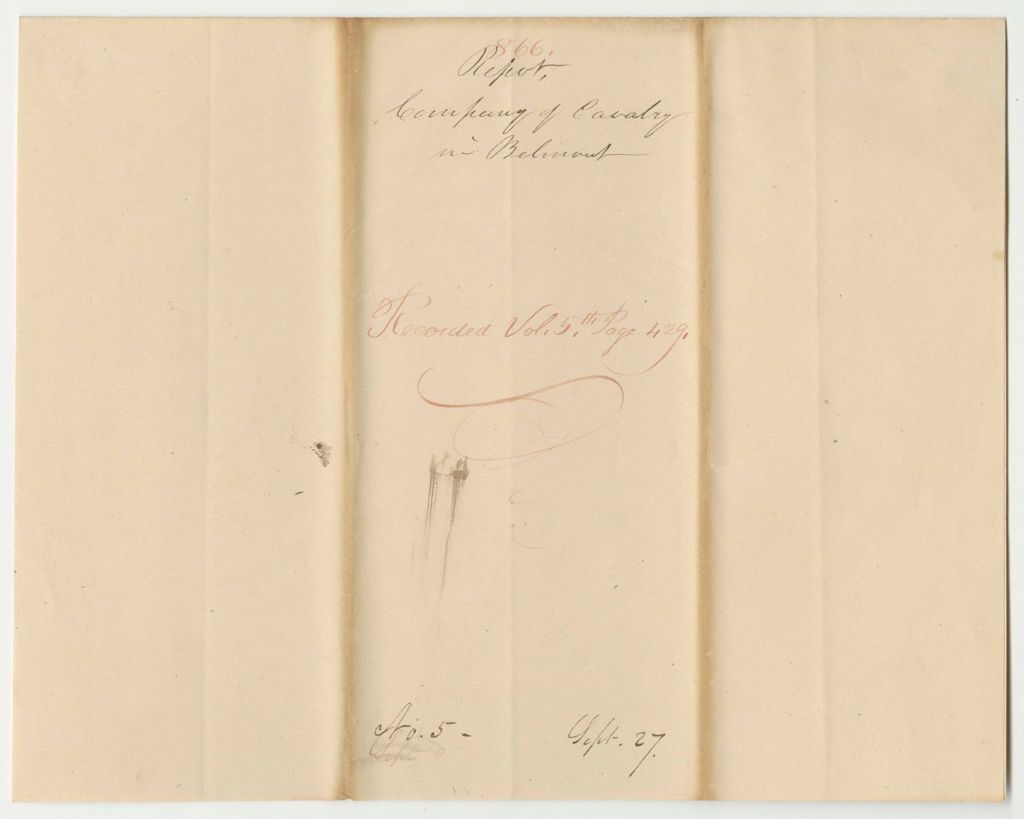 866.
Repot,
Company of Cavalry
in Belmont
Recorded Vol. 5.th Page 429.
No. 5 - Sept. 27.
Sept